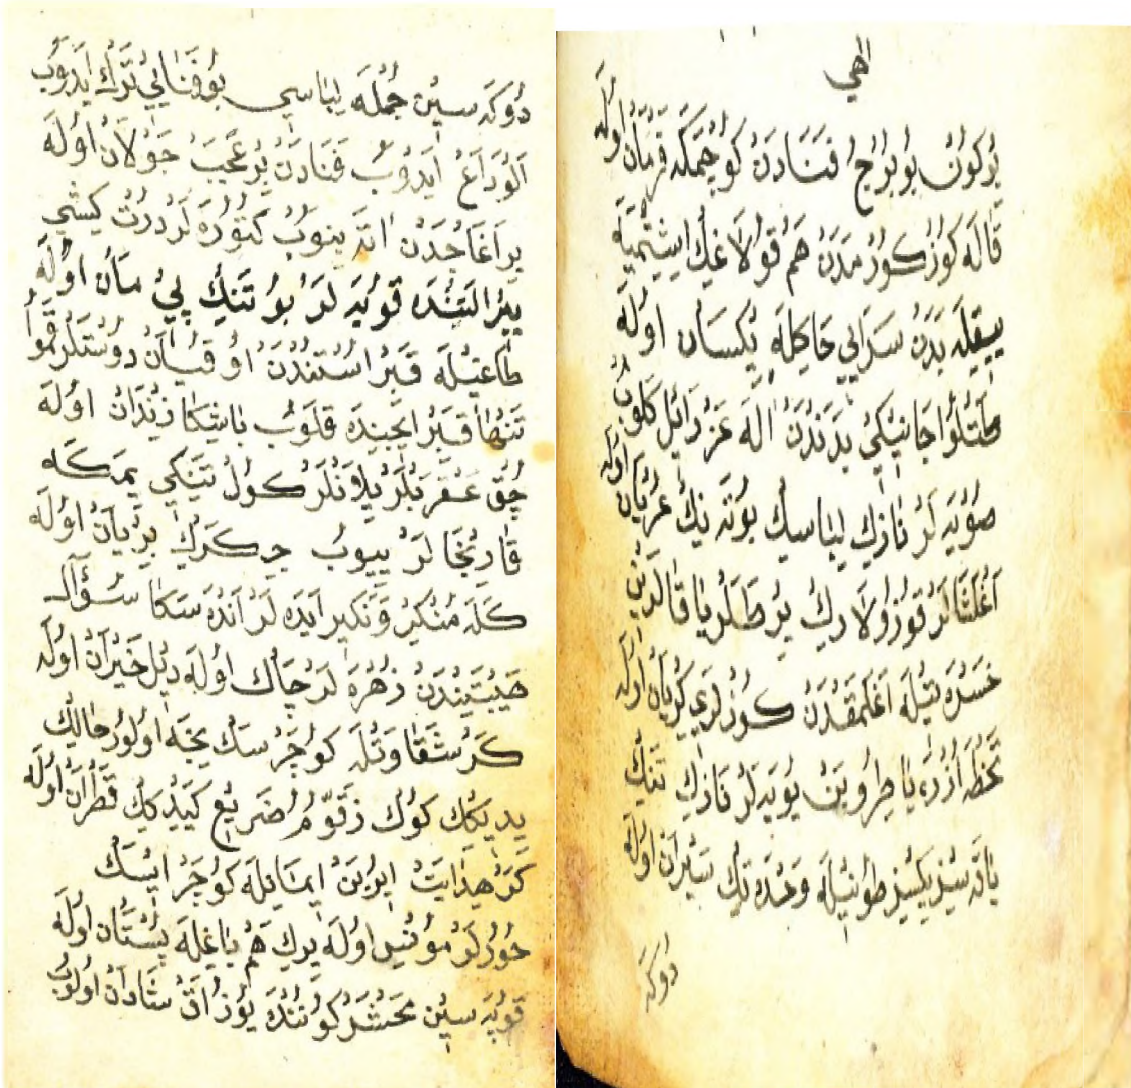 الهي
بُركُون بُو بُرْجُ فَنَادَنْ كُوچمَكَه فَرْمَانْ اُولَه
قَالَه كُوزْ كُورْمَدَنْ هَمْ قُولَاغِڭ ايشِتْمَيَه
ييقِلَه بَدَنْ سَرَايى خَاكِلَه يَكسَان اوُلَه
طَاتْلُو جَانِڭِى بَدَنْدَنْ اَلَه عَزْرَائِل كَلُوبْ
صُويَه لَرْ نَازِك لِبَاسِڭ بُو تَنِڭ عُرْيَان اُولَه
اَغْلَشَالَرْ قُوزُولَارِڭ يِرْطَلَرْ يَاقَالَرِينْ
حَسْرَتِيلَه اَغْلَمَقْدَنْ كُوزْلَرِى كِرْيَانْ اُولَه
تَخْطَه اُزْرَه يَاطِرُوبَنْ يُويَه لَرْ نَازِك تَنِڭ
يَاتَه سِڭ سِزْ طُوئِنِيلَه وَعْدَه تِڭ سَيْرَانْ اُولَه
دُوكَه
دُوكَه سِين جُمْلَه لِبَاسِى بُو فَنَايِى تَرْك ايدُوبْ
اَلْوَدَاعْ ايدُوبْ فَنَادَنْ بِرْ عَجَبْ جَوْلَانْ اُولَه
بر اَغَاجْدَنْ اتَه بِنُوبْ كَتُورَه لَرْ دُرْت كِيشِى
يِيرْ الْتِنْدَه قُويَه لَرْ بُو تَنِڭ بِى مَانْ اوُلَه
طَاغِيلَه قَبِرْ اُسْتِنْدَنْ اُوقِيَانْ دُوسْتلَرْ قَمُو
تَنْهَا قَبِرْ ايچِنِدَه قَلُوبْ بَاشِڭَا زِنْدَانْ اوُلَه
چُقْ عَقْرَبْلَرْ يِلَانْلَرْ كَلُ تَنِڭِى يِمَكَه
قَارِنْجَا لَرْ يِيُوبْ جِكَرِڭ بِرْيَانْ اوُلَه
كَلَه مُنْكَرْ وَنَكِير ايدَه لَرْ اَنْدَه سَڭَا سُؤَالْ
هَيْبَتِينْدَنْ زَهْرَه لَرْ چَاك اُولَه دِيل حَيْرَانْ اوُلَه
كَرْ شَقَاوَتْلَه كُوچَرْسَڭ نِجَه اُولُورْ حَالِڭ
يِديكِڭ كُوك زَقُّومُ ضَرِيع كَيْدِيكِڭ قَطْرَانْ اُولَه
كَرْ هِدَايَتْ ايرُبَنْ ايمَانِلَه كُوچَرْ ايسَڭ
حُورْلَرْ مُونِس اُولَه يِرِڭ هَمْ بَاغِلَه بُسْتَان اوُلَه
قُويَه سِين مَحْشَرْ كُونُنْدَه يُوزُ اقْ شَادَانْ اُولُوبْ